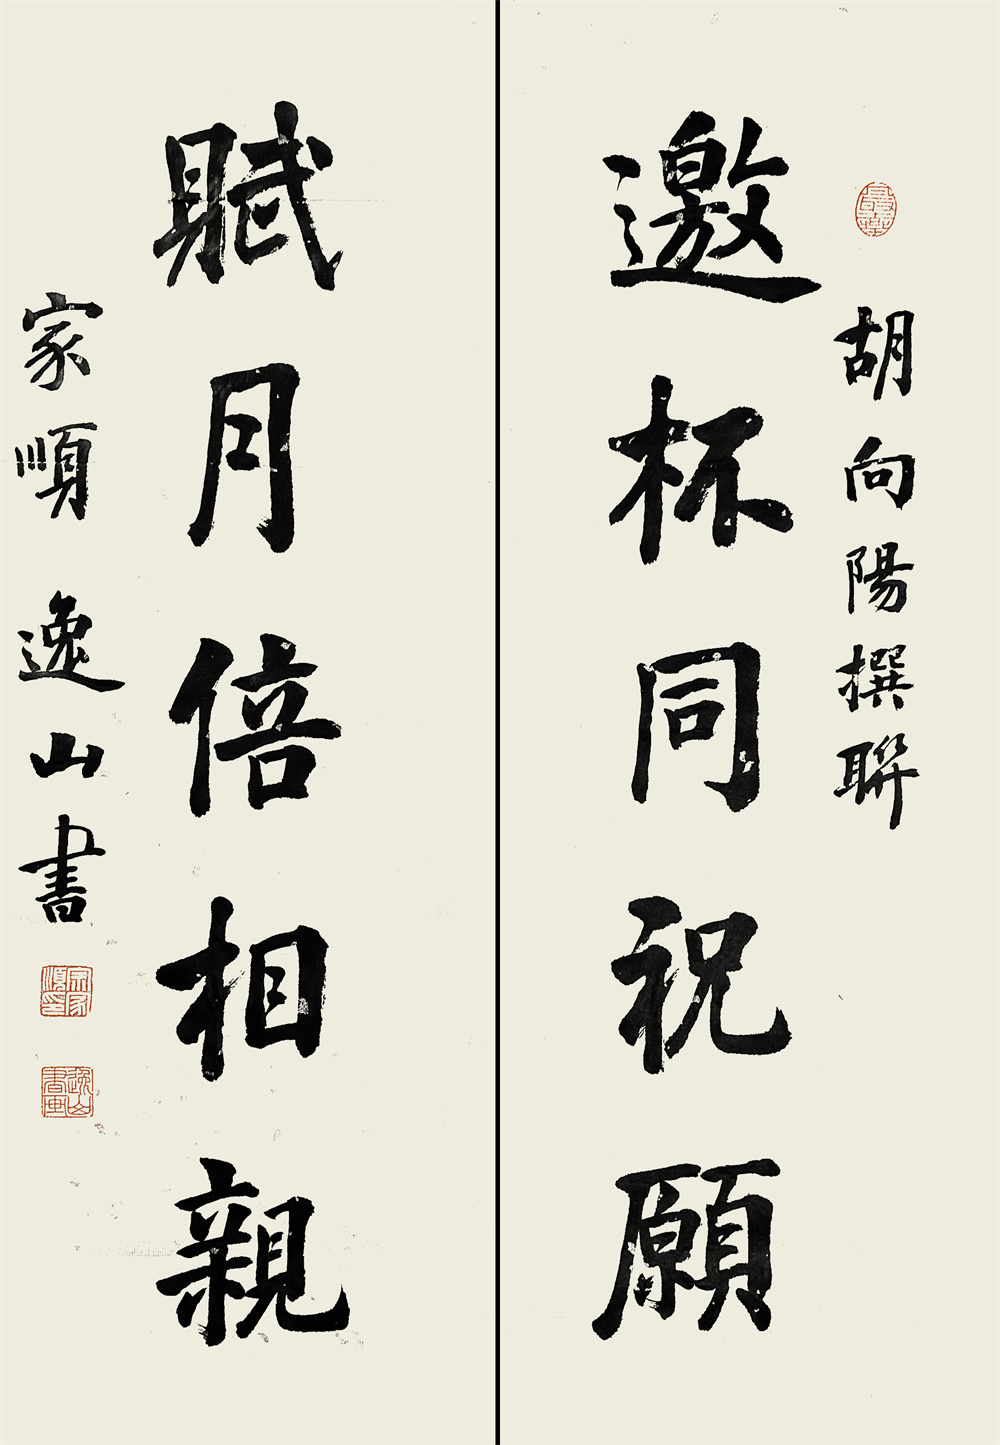 胡向陽撰聯
邀杯同祝願
賦月倍相親
家順逸山書